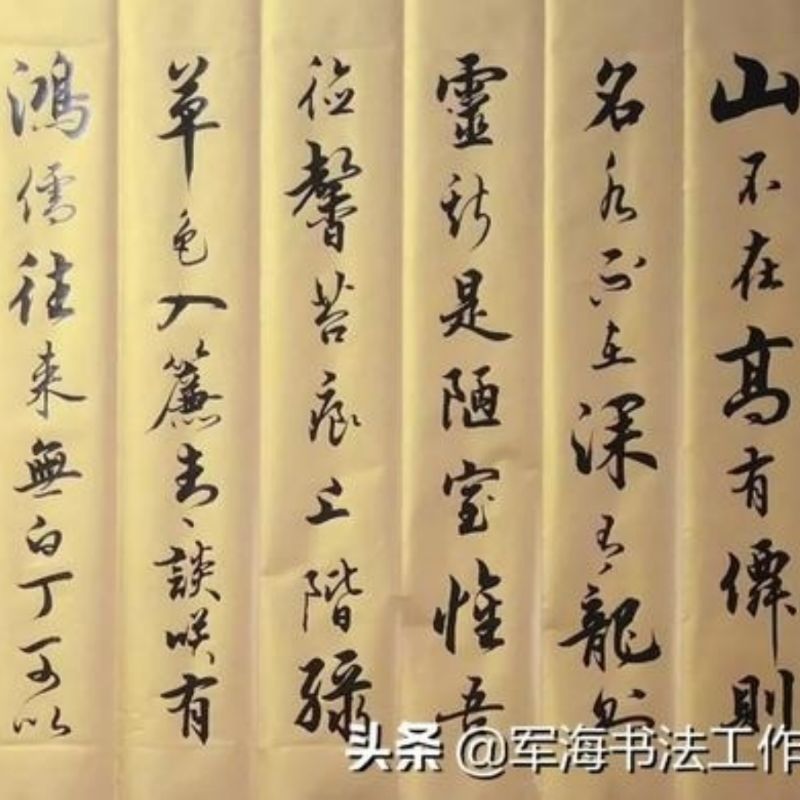 山不在高有仙則
名水不在深有龍則
靈斯是陋室惟吾
德馨苔痕上階綠
草色入簾青談笑有
鴻儒往來無白丁可以
头条 @军海书法工作